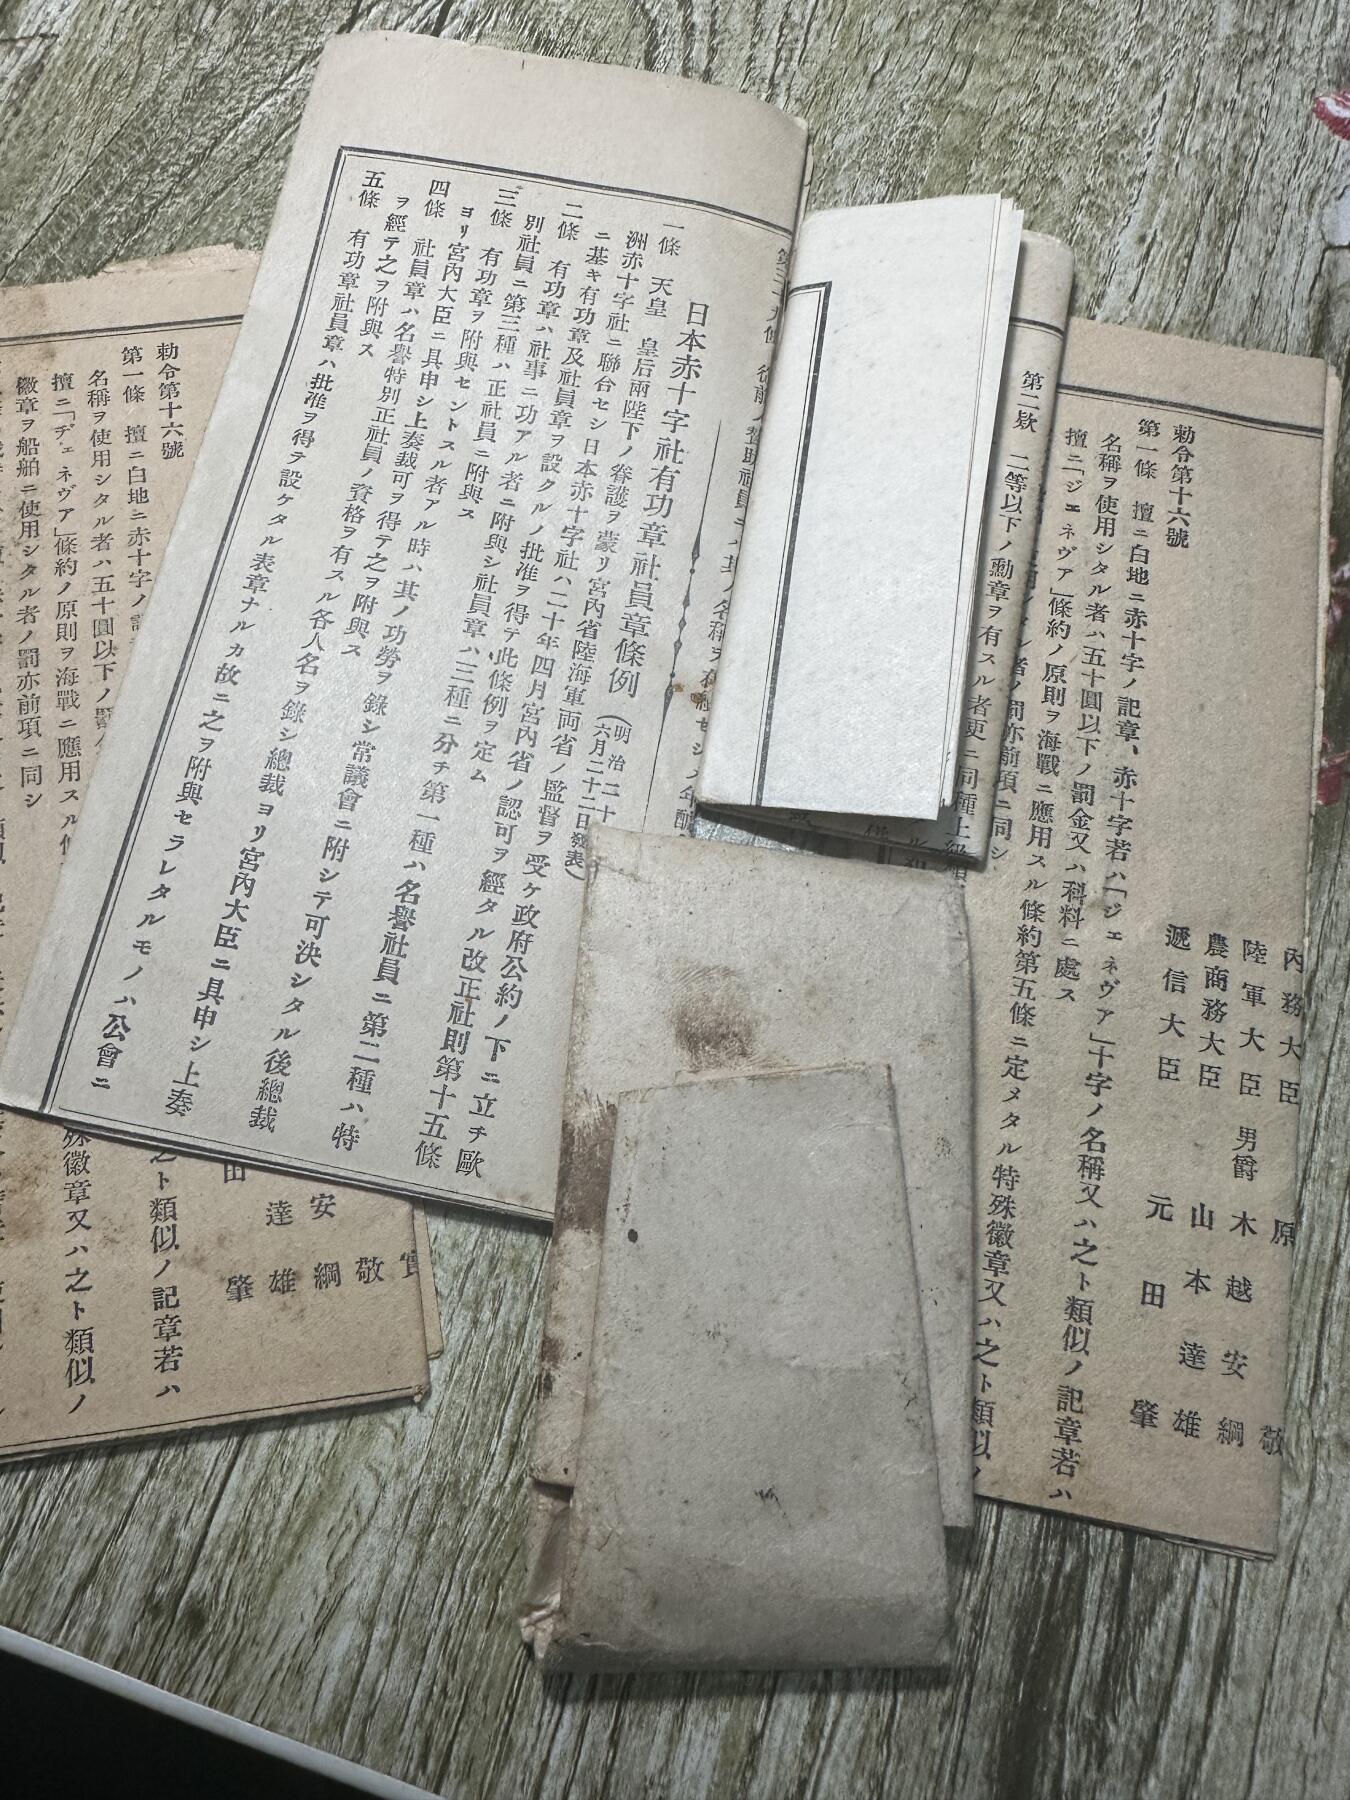 日本赤十字社有功章社員章條例 (明治二十
六月二十二日發表)
一條 天皇 皇后兩陛下ノ眷護ヲ蒙リ宮内省陸海軍両省ノ監督ヲ受ケ政府公約ノ下ニ立チ歐
洲赤十字社ニ聯合セシ日本赤十字社ハ二十年四月宮内省ノ認可ヲ經タル改正社則第十五條
ニ基キ有功章及社員章ヲ設クルノ批准ヲ得テ此條例ヲ定ム
二條 有功章ハ社事ニ功アル者ニ附與シ社員章ハ三種ニ分チ第一種ハ名譽社員ニ第二種ハ特
別社員ニ第三種ハ正社員ニ附與ス
三條 有功章ヲ附與セントスル者アル時ハ其ノ功勞ヲ錄シ常議會ニ附シテ可決シタル後總裁
ヨリ宮内大臣ニ具申シ上奏裁可ヲ得テ之ヲ附與ス
四條 社員章ハ名譽特別正社員ノ資格ヲ有スル各人名ヲ錄シ總裁ヨリ宮内大臣ニ具申シ上奏
ヲ經テ之ヲ附與ス
五條 有功章社員章ハ批准ヲ得テ設ケタル表章ナルカ故ニ之ヲ附與セラレタルモノハ公會ニ
内務大臣 原 敬
陸軍大臣 男爵 木越安綱
農商務大臣 山本達雄
遞信大臣 元田 肇
勅令第十六號
第一條 擅ニ白地ニ赤十字ノ記章、赤十字若ハ「ジェネヴァ」十字ノ名稱又ハ之ト類似ノ記章若ハ
名稱ヲ使用シタル者ハ五十圓以下ノ罰金又ハ科料ニ處ス
擅ニ「ジェネヴァ」條約ノ原則ヲ海戰ニ應用スル條約第五條ニ定メタル特殊徽章又ハ之ト類似ノ
者ノ罰亦前項ニ同シ
第二欵 二等以下ノ勳章ヲ有スル者更ニ同種上級
敬
安綱
達雄
田 肇
勅令第十六號
第一條 擅ニ白地ニ赤十字ノ
之ト類似ノ記章若ハ
名稱ヲ使用シタル者ハ五十圓以下ノ
擅ニ「ヂェネヴア」條約ノ原則ヲ海戰ニ應用スル
殊徽章又ハ之ト類似ノ
徽章ヲ船舶ニ使用シタル者ノ罰亦前項ニ同シ